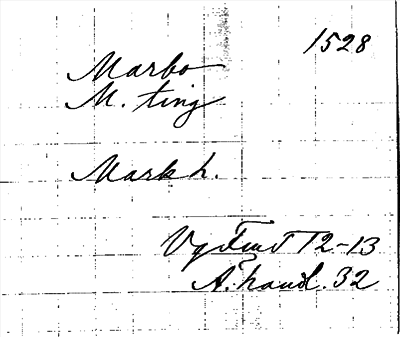 1528
Marbo
M. ting
Mark h.
Vg Fmt 12-13
Ä. hand. 32